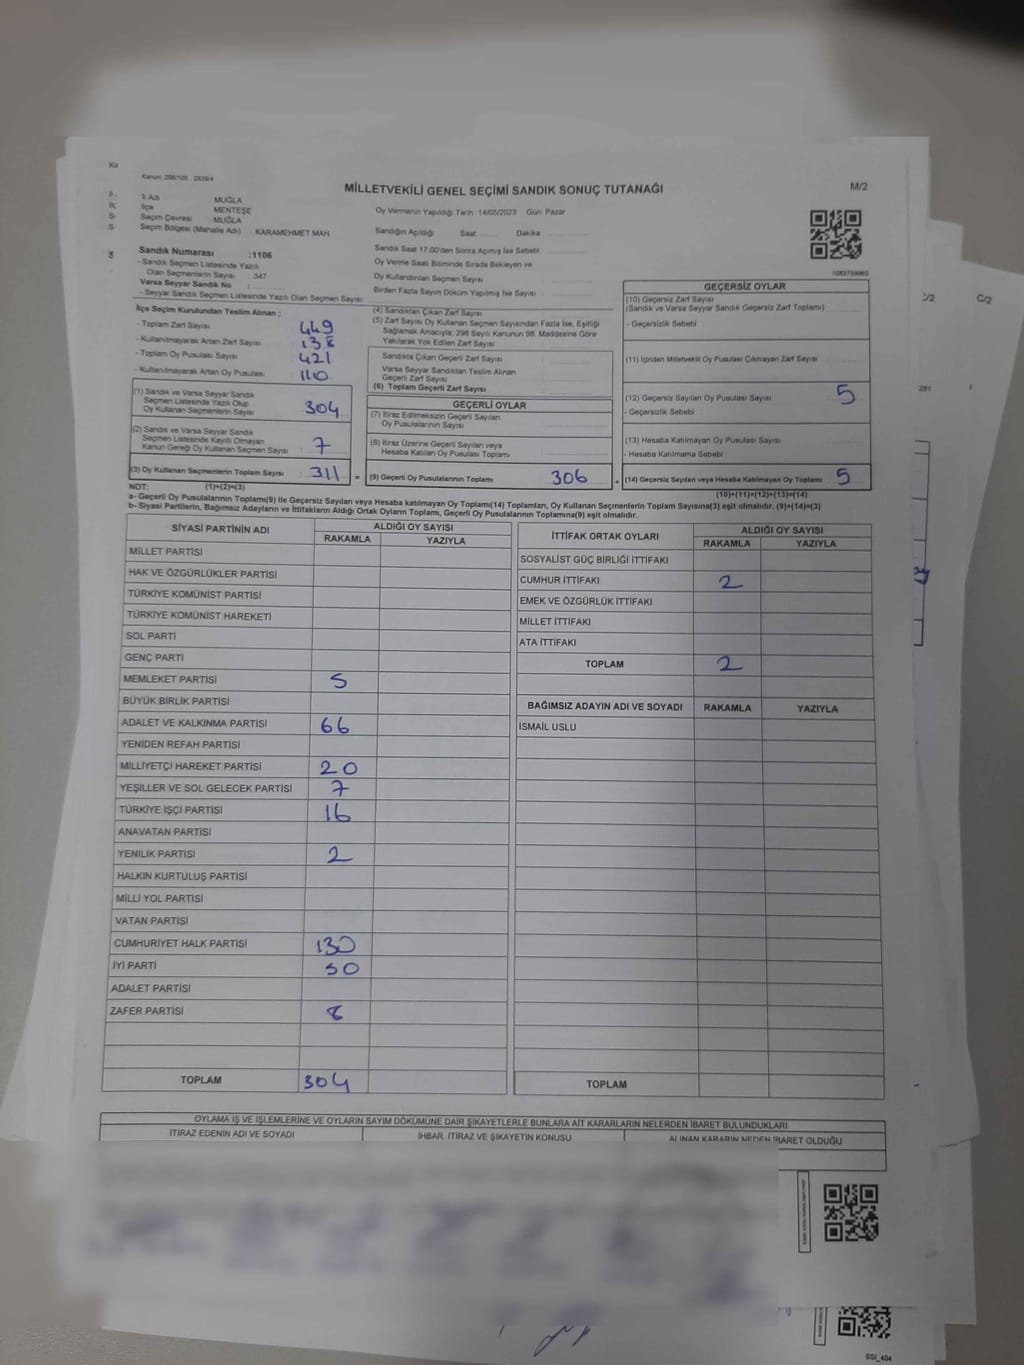 MİLLETVEKİLİ GENEL SEÇİMİ SANDIK SONUÇ TUTANAĞI
M/2
İl Adı MUĞLA
İlçe MENTEŞE
Seçim Çevresi MUĞLA
Seçim Bölgesi (Mahalle Adı) : KARAMEHMET MAH
Oy Vermenin Yapıldığı Tarih: 14/05/2023 Gün: Pazar
Sandığın Açıldığı Saat: Dakika
Sandık Saat 17:00'den Sonra Açılmış İse Sebebi
Oy Verme Saati Bitiminde Sırada Bekleyen ve
Oy Kullandırılan Seçmen Sayısı
Birden Fazla Sayım Döküm Yapılmış İse Sayısı
Sandık Numarası :1106
- Sandık Seçmen Listesinde Yazılı
Olan Seçmenlerin Sayısı : 347
Varsa Seyyar Sandık No
- Seyyar Sandık Seçmen Listesinde Yazılı Olan Seçmen Sayısı
İlçe Seçim Kurulundan Teslim Alınan ;
- Toplam Zarf Sayısı 449
- Kullanılmayarak Artan Zarf Sayısı 138
- Toplam Oy Pusulası Sayısı 421
- Kullanılmayarak Artan Oy Pusulası 110
(1) Sandık ve Varsa Seyyar Sandık
Seçmen Listesinde Yazılı Olup
Oy Kullanan Seçmenlerin Sayısı 304
(2) Sandık ve Varsa Seyyar Sandık
Seçmen Listesinde Kayıtlı Olmayan
Kanun Gereği Oy Kullanan Seçmen Sayısı 7
(3) Oy Kullanan Seçmenlerin Toplam Sayısı 311
(4) Sandıktan Çıkan Zarf Sayısı
(5) Zarf Sayısı Oy Kullanan Seçmen Sayısından Fazla İse, Eşitliği
Sağlamak Amacıyla; 298 Sayılı Kanunun 98. Maddesine Göre
Yakılarak Yok Edilen Zarf Sayısı
Sandıkta Çıkan Geçerli Zarf Sayısı
Varsa Seyyar Sandıktan Teslim Alınan
Geçerli Zarf Sayısı
(6) Toplam Geçerli Zarf Sayısı
GEÇERLİ OYLAR
(7) İtiraz Edilmeksizin Geçerli Sayılan
Oy Pusulalarının Sayısı
(8) İtiraz Üzerine Geçerli Sayılan veya
Hesaba Katılan Oy Pusulası Toplamı
= (9) Geçerli Oy Pusulalarının Toplamı 306
1083759960
GEÇERSİZ OYLAR
(10) Geçersiz Zarf Sayısı
(Sandık ve Varsa Seyyar Sandık Geçersiz Zarf Toplamı)
- Geçersizlik Sebebi :
(11) İçinden Milletvekili Oy Pusulası Çıkmayan Zarf Sayısı
(12) Geçersiz Sayılan Oy Pusulası Sayısı 5
- Geçersizlik Sebebi :
(13) Hesaba Katılmayan Oy Pusulası Sayısı
- Hesaba Katılmama Sebebi :
+ (14) Geçersiz Sayılan veya Hesaba Katılmayan Oy Toplamı 5
NOT: (1)+(2)=(3)
(10)+(11)+(12)+(13)=(14)
a- Geçerli Oy Pusulalarının Toplamı(9) ile Geçersiz Sayılan veya Hesaba katılmayan Oy Toplamı(14) Toplamları, Oy Kullanan Seçmenlerin Toplam Sayısına(3) eşit olmalıdır. (9)+(14)=(3)
b- Siyasi Partilerin, Bağımsız Adayların ve İttifakların Aldığı Ortak Oyların Toplamı, Geçerli Oy Pusulalarının Toplamına(9) eşit olmalıdır.
SİYASİ PARTİNİN ADI ALDIĞI OY SAYISI
RAKAMLA YAZIYLA
MİLLET PARTİSİ
HAK VE ÖZGÜRLÜKLER PARTİSİ
TÜRKİYE KOMÜNİST PARTİSİ
TÜRKİYE KOMÜNİST HAREKETİ
SOL PARTİ
GENÇ PARTİ
MEMLEKET PARTİSİ 5
BÜYÜK BİRLİK PARTİSİ
ADALET VE KALKINMA PARTİSİ 66
YENİDEN REFAH PARTİSİ
MİLLİYETÇİ HAREKET PARTİSİ 20
YEŞİLLER VE SOL GELECEK PARTİSİ 7
TÜRKİYE İŞÇİ PARTİSİ 16
ANAVATAN PARTİSİ
YENİLİK PARTİSİ 2
HALKIN KURTULUŞ PARTİSİ
MİLLİ YOL PARTİSİ
VATAN PARTİSİ
CUMHURİYET HALK PARTİSİ 130
İYİ PARTİ 50
ADALET PARTİSİ
ZAFER PARTİSİ 8
TOPLAM 304
İTTİFAK ORTAK OYLARI ALDIĞI OY SAYISI
RAKAMLA YAZIYLA
SOSYALİST GÜÇ BİRLİĞİ İTTİFAKI
CUMHUR İTTİFAKI 2
EMEK VE ÖZGÜRLÜK İTTİFAKI
MİLLET İTTİFAKI
ATA İTTİFAKI
TOPLAM 2
BAĞIMSIZ ADAYIN ADI VE SOYADI RAKAMLA YAZIYLA
İSMAİL USLU
TOPLAM
OYLAMA İŞ VE İŞLEMLERİNE VE OYLARIN SAYIM DÖKÜMÜNE DAİR ŞİKAYETLERLE BUNLARA AİT KARARLARIN NELERDEN İBARET BULUNDUKLARI
İTİRAZ EDENİN ADI VE SOYADI İHBAR, İTİRAZ VE ŞİKAYETİN KONUSU ALINAN KARARIN NEDEN İBARET OLDUĞU
C/2
281